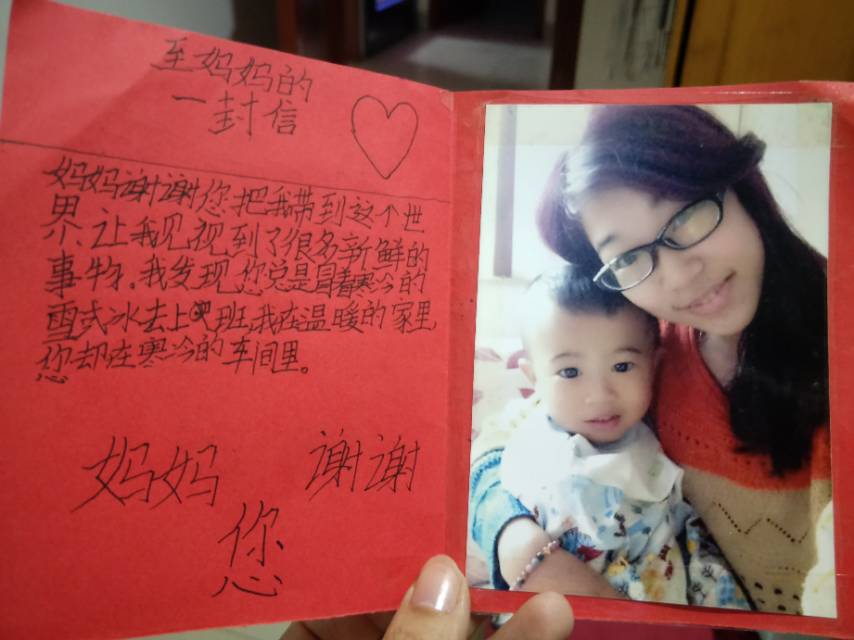 至妈妈的
一封信
妈妈谢谢您把我带到这个世
界、让我见视到了很多新鲜的
事物．我发现您总是冒着寒冷的
雪或冰去上班，我在温暖的家里，
您却在寒冷的车间里。
妈妈 谢谢
您